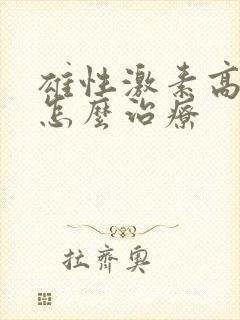 雄性激素高
怎麼治療
拉齊奧